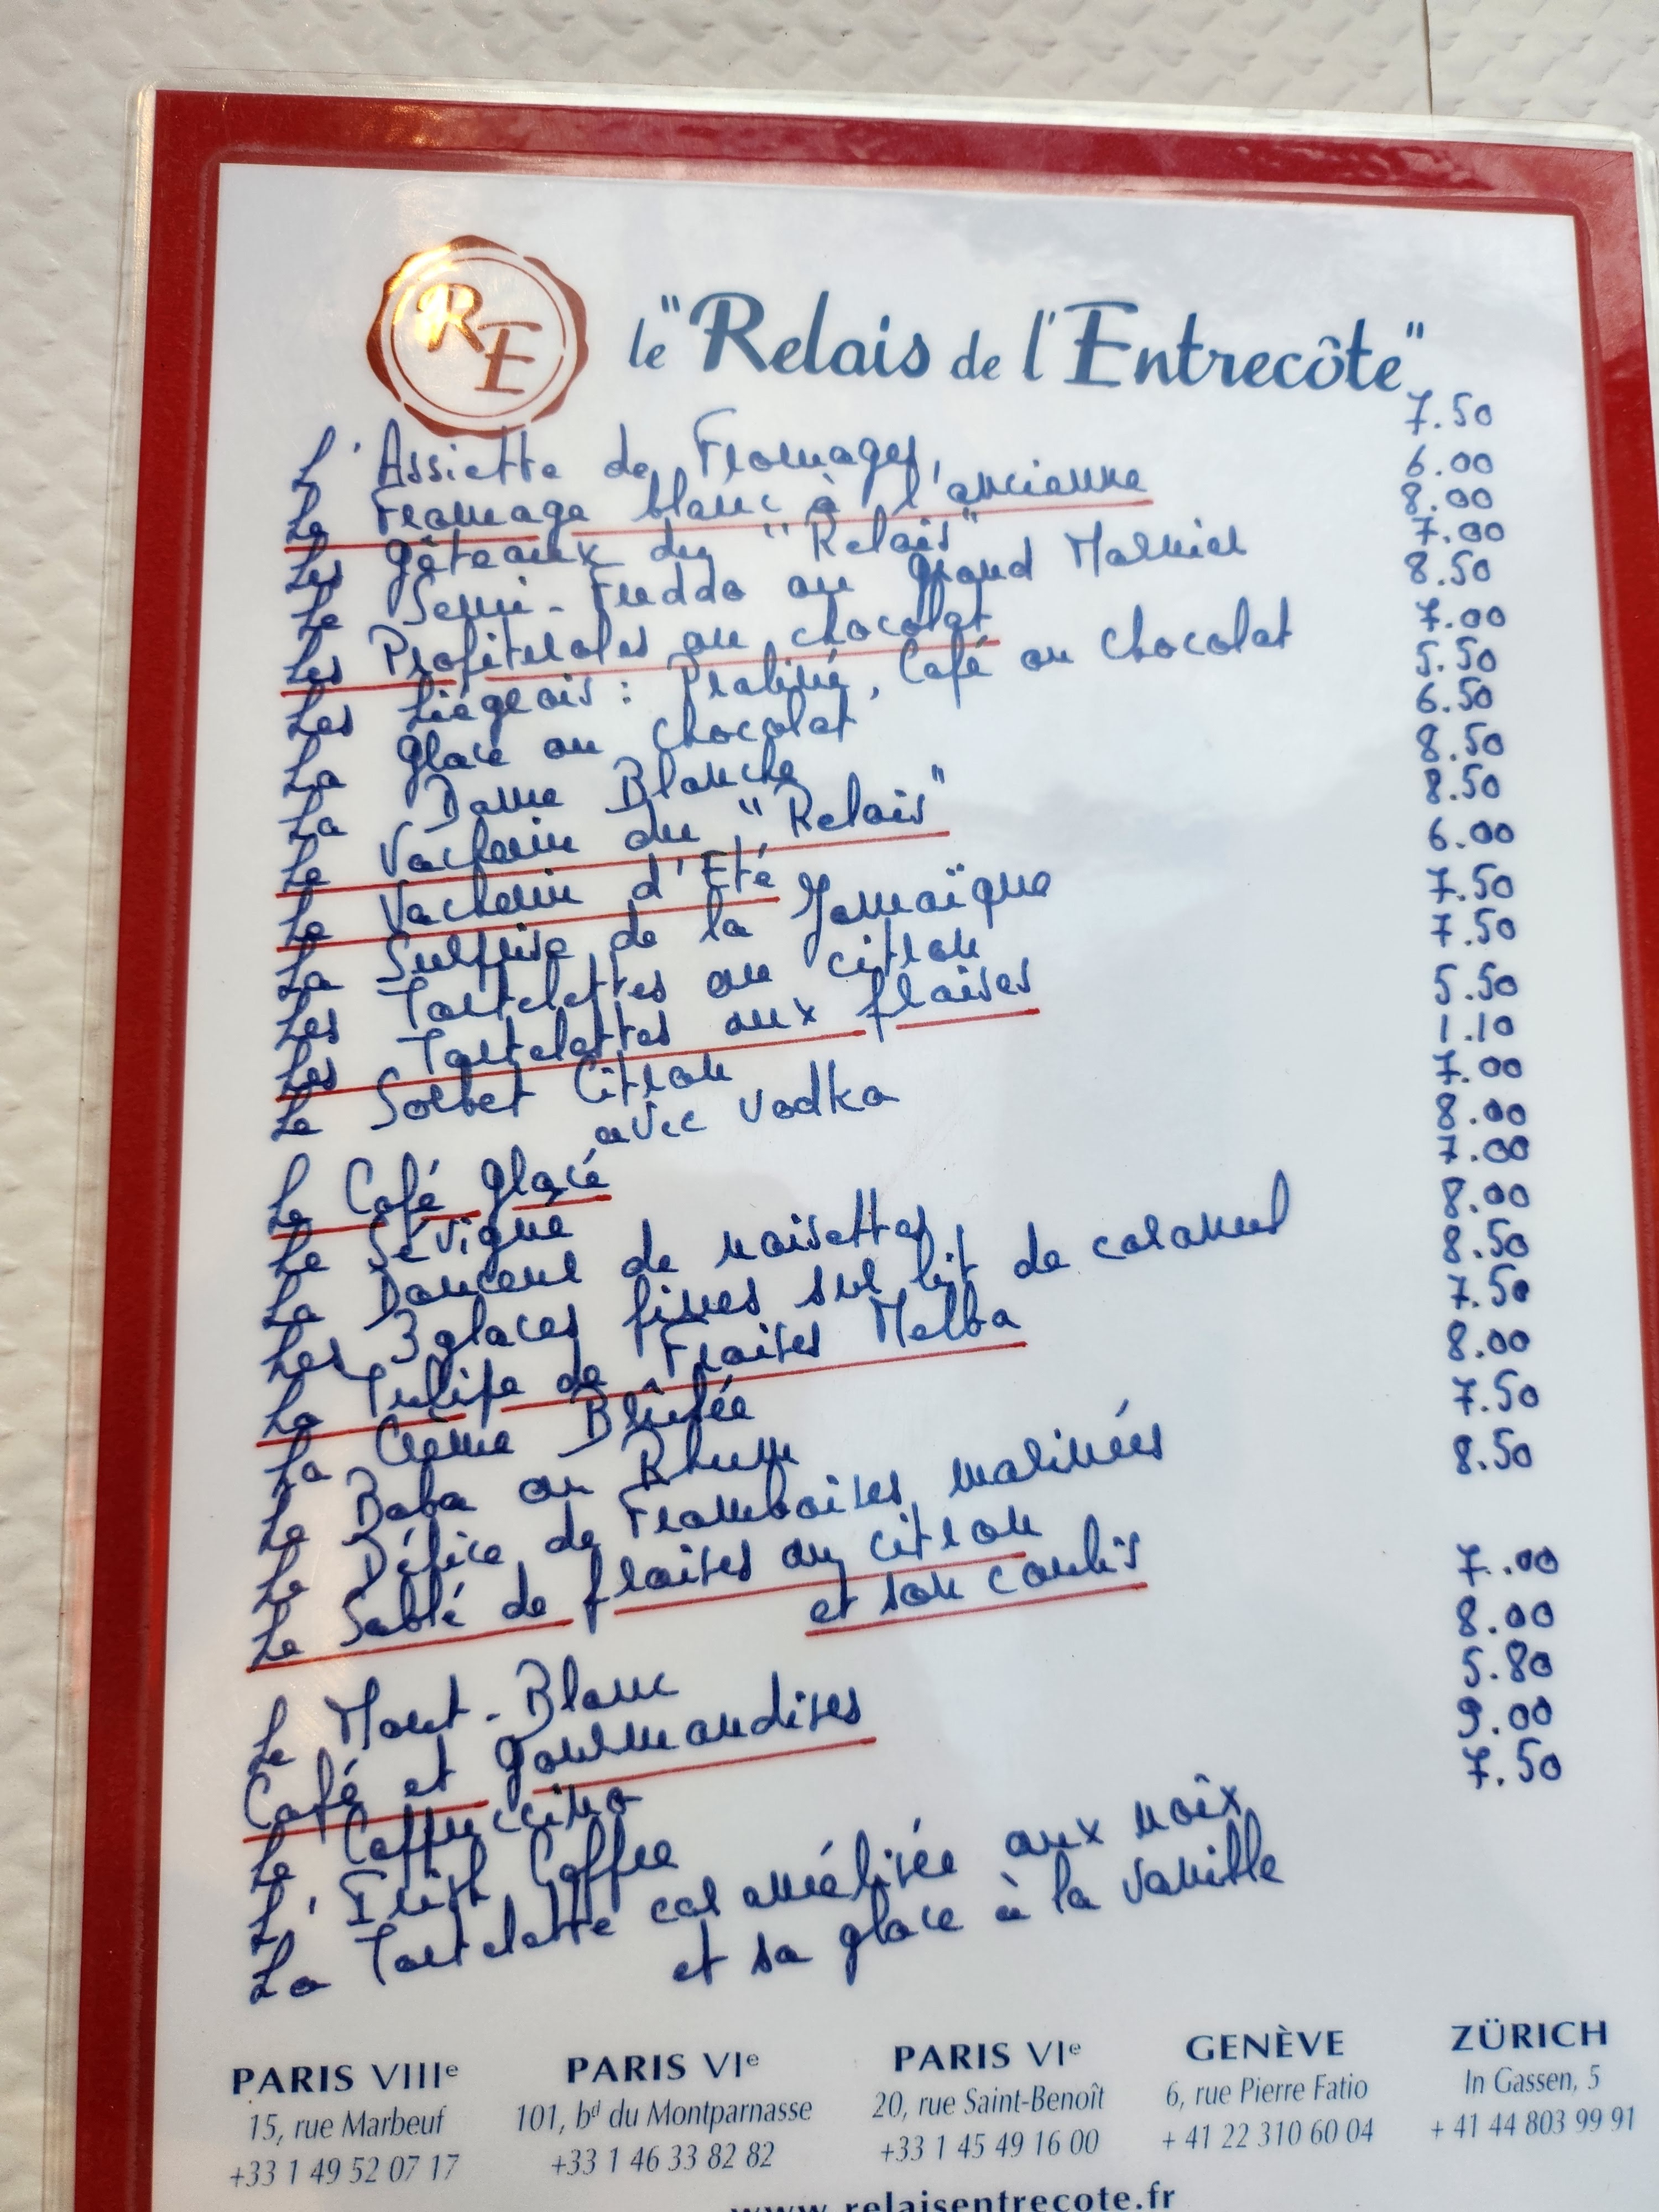 RE
le "Relais de l'Entrecôte"
L'Assiette de Fromages 7.50
Le Fromage blanc à l'ancienne 6.00
Les Gâteaux du "Relais" 8.00
Le Semi-Freddo au Grand Marnier 7.00
Les Profiteroles au chocolat 8.50
Les Liégeois : Praliné, Café ou Chocolat 7.00
La Glace au chocolat 5.50
La Dame Blanche 6.50
Le Vacherin du "Relais" 8.50
Le Vacherin d'Eté 8.50
La Surprise de la Jamaïque 6.00
Les Tartelettes au citron 7.50
Les Tartelettes aux fraises 7.50
Le Sorbet Citron 5.50
avec Vodka 1.10
Le Café glacé 7.00
Le Sévigné 8.00
La Douceur de noisettes 7.00
Les 3 glaces fines sur lit de caramel 8.00
La Tulipe de Fraises Melba 8.50
La Crème Brûlée 7.50
Le Baba au Rhum 8.00
Le Délice de Framboises marinées 7.50
Le Sablé de fraises au citron 8.50
et son coulis
Le Mont-Blanc 7.00
Café et Gourmandises 8.00
Le Cappuccino 5.80
L'Irish Coffee 9.00
La Tartelette caramélisée aux noix 7.50
et sa glace à la vanille
PARIS VIIIe PARIS VIe PARIS VIe GENÈVE ZÜRICH
15, rue Marbeuf 101, bd du Montparnasse 20, rue Saint-Benoît 6, rue Pierre Fatio In Gassen, 5
+33 1 49 52 07 17 +33 1 46 33 82 82 +33 1 45 49 16 00 + 41 22 310 60 04 + 41 44 803 99 91
www.relaisentrecote.fr